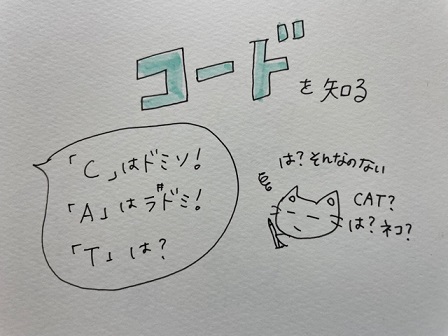 コードを知る
「C」はドミソ!
「A」はラ#ドミ!
「T」は?
は?そんなのない
CAT?
は?ネコ?